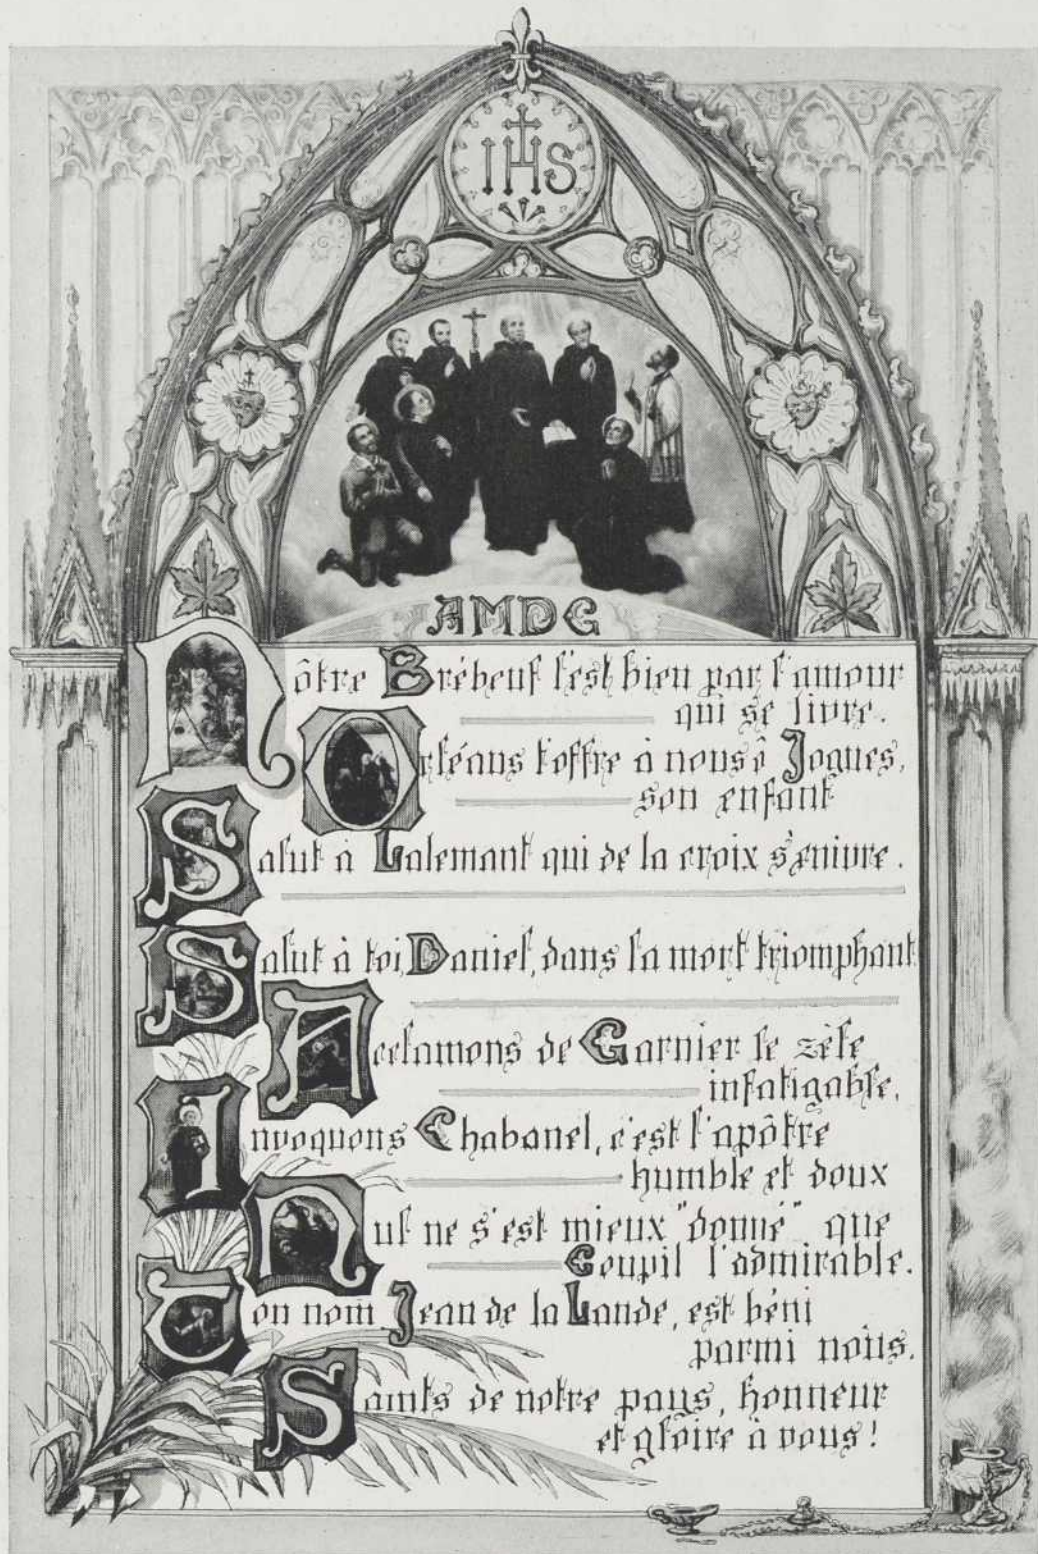 IHS
AMDG
Nôtre Brébeuf l'est bien par l'amour
qui se livre.
Orléans t'offre à nous ô Jogues,
son enfant
Salut à Lalemant qui de la croix s'enivre.
Salut à toi, Daniel, dans la mort triomphant
Acclamons de Garnier le zèle
infatigable,
Invoquons Chabanel, c'est l'apôtre
humble et doux
Nul ne s'est mieux "donné" que
Goupil l'admirable.
Ton nom, Jean de la Lande, est béni
parmi nous.
Saints de notre pays, honneur
et gloire à vous!